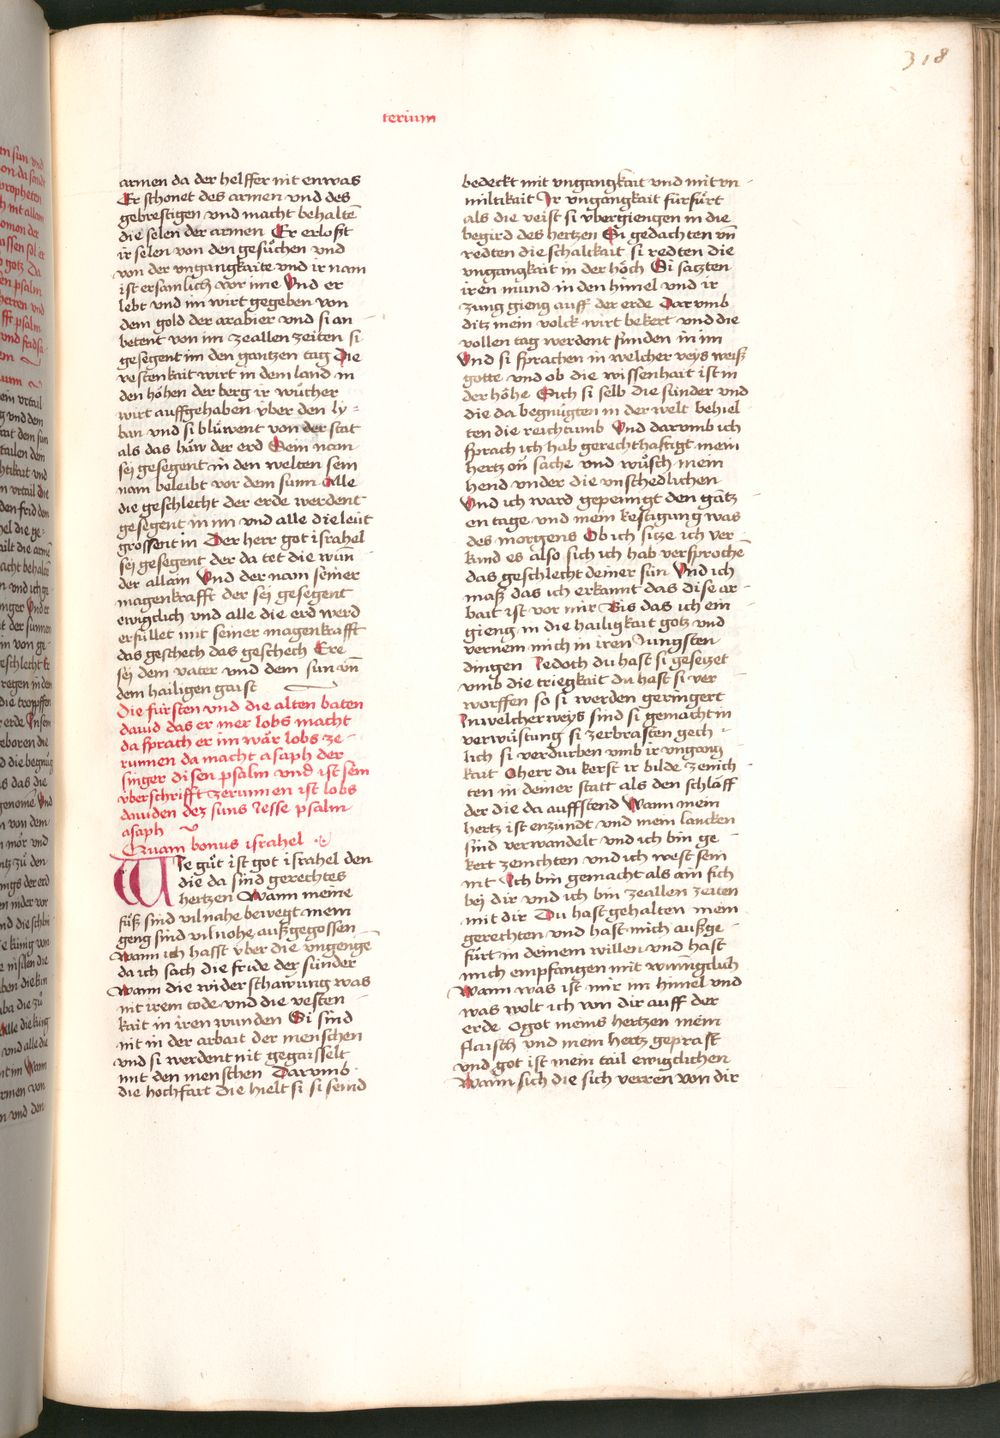 318
terium
armen da der helffer nit enwas
Er schonet des armen vnd des
gebrestigen vnd macht behaltē
die selen der armen Er erloßt
ir selen von den gesůchen vnd
von der vngangkaite vnd ir nam
ist ersamlich vor ime Vnd er
lebt vnd im wirt gegeben von
dem gold der arabier vnd si an
betent von im zeallen zeiten si
gesegent im den gantzen tag Die
vestenkait wirt in dem land in
den höhen der berg ir wůcher
wirt auffgehaben vber den ly-
ban vnd si blüwent von der stat
als das häw der erd Sein nam
sei gesegent in den welten sein
nam beleibt vor dem sunn Alle
die geschlecht der erde werdent
gesegent in im vnd alle die leüt
grossent in Der herr got israhel
sei gesegent der da tet die wun̄
der allain Vnd der nam seiner
magenkrafft der sei gesegent
ewigclich vnd alle die erd werd
erfüllet mit seiner magenkrafft
das geschech das geschech Ere
sei dem vater vnd dem sun vn̄
dem hailigen gaist
Die fürsten vnd die alten baten
dauid das er mer lobs macht
da sprach er im wär lobs ze-
runnen da macht asaph der
singer disen psalm vnd ist sein
vberschrifft zerunnen ist lobs
dauiden dez suns Jesse psalm
asaph
Quam bonus israhel
Wie gůt ist got israhel den
die da sind gerechtes
hertzen Wann meine
füß sind vilnahe bewegt mein
geng sind vilnohe außgegossen
Wann ich hasst vber die vngenge
da ich sach die fride der sünder
Wann die widerschawung was
nit irem tode vnd die vesten
kait in iren wunden Si sind
nit in der arbait der menschen
vnd si werdent nit gegaisselt
mit den menschen Darvmb
die hochfart die hielt si si seind
bedeckt mit vngangkait vnd mit vn-
miltikait Ir vngangkait fürfürt
als die veist si vbergiengen in die
begird des hertzen Si gedachten vn̄
redten die schalckait si redten die
vngangkait in der höch Si satzten
iren mund in den himel vnd ir
zung gieng auff der erde Darvmb
ditz mein volck wirt bekert vnd die
vollen tag werdent funden in im
Vnd si sprachen in welcher weys weiß
gotte vnd ob die wissenhait ist in
der höhe Sich si selb die sünder vnd
die da begnügten in der welt behiel
ten die reichtumb Vnd darvmb ich
sprach ich hab gerechthaftigt mein
hertz on̄ sache vnd wůsch mein
hend vnder die vnschedlichen
Vnd ich ward gepeinigt den gätz
en tage vnd mein kestigung was
des morgens Ob ich sitze ich ver
kund es also sich ich hab versproche
das geschlecht deiner sün Vnd ich
maß das ich erkannt das dise ar-
bait ist vor mir Bis das ich ein
gieng in die hailigkait gotz vnd
vernem mich in iren Jungsten
dingen Jedoch du hast si gesetzet
vmb die triegkait du hast si ver
worffen so si werden geringert
Inwelcher weys sind si gemacht in
verwüstung si zerbrasten gech-
lich si verdurben vmb ir vngang
kait O herr du kerst ir bilde zenich
ten in deiner statt als den schlaff
der die da auffstend Wann mein
hertz ist enzündt vnd mein lancken
sind verwandelt vnd ich bin ge
kert zenichten vnd ich west sein
nit Ich bin gemacht als ain fich
bei dir vnd ich bin zeallen zeiten
mit dir Du hast gehalten mein
gerechten vnd hast mich außge-
fürt in deinem willen vnd hast
mich empfangen mit wunnigclich
Wann was ist mir im himel vnd
was wolt ich von dir auff der
erde O got meins hertzen mein
flaisch vnd mein hertz geprast
vnd got ist mein tail ewigclichen
Wann sich die sich verren von dir